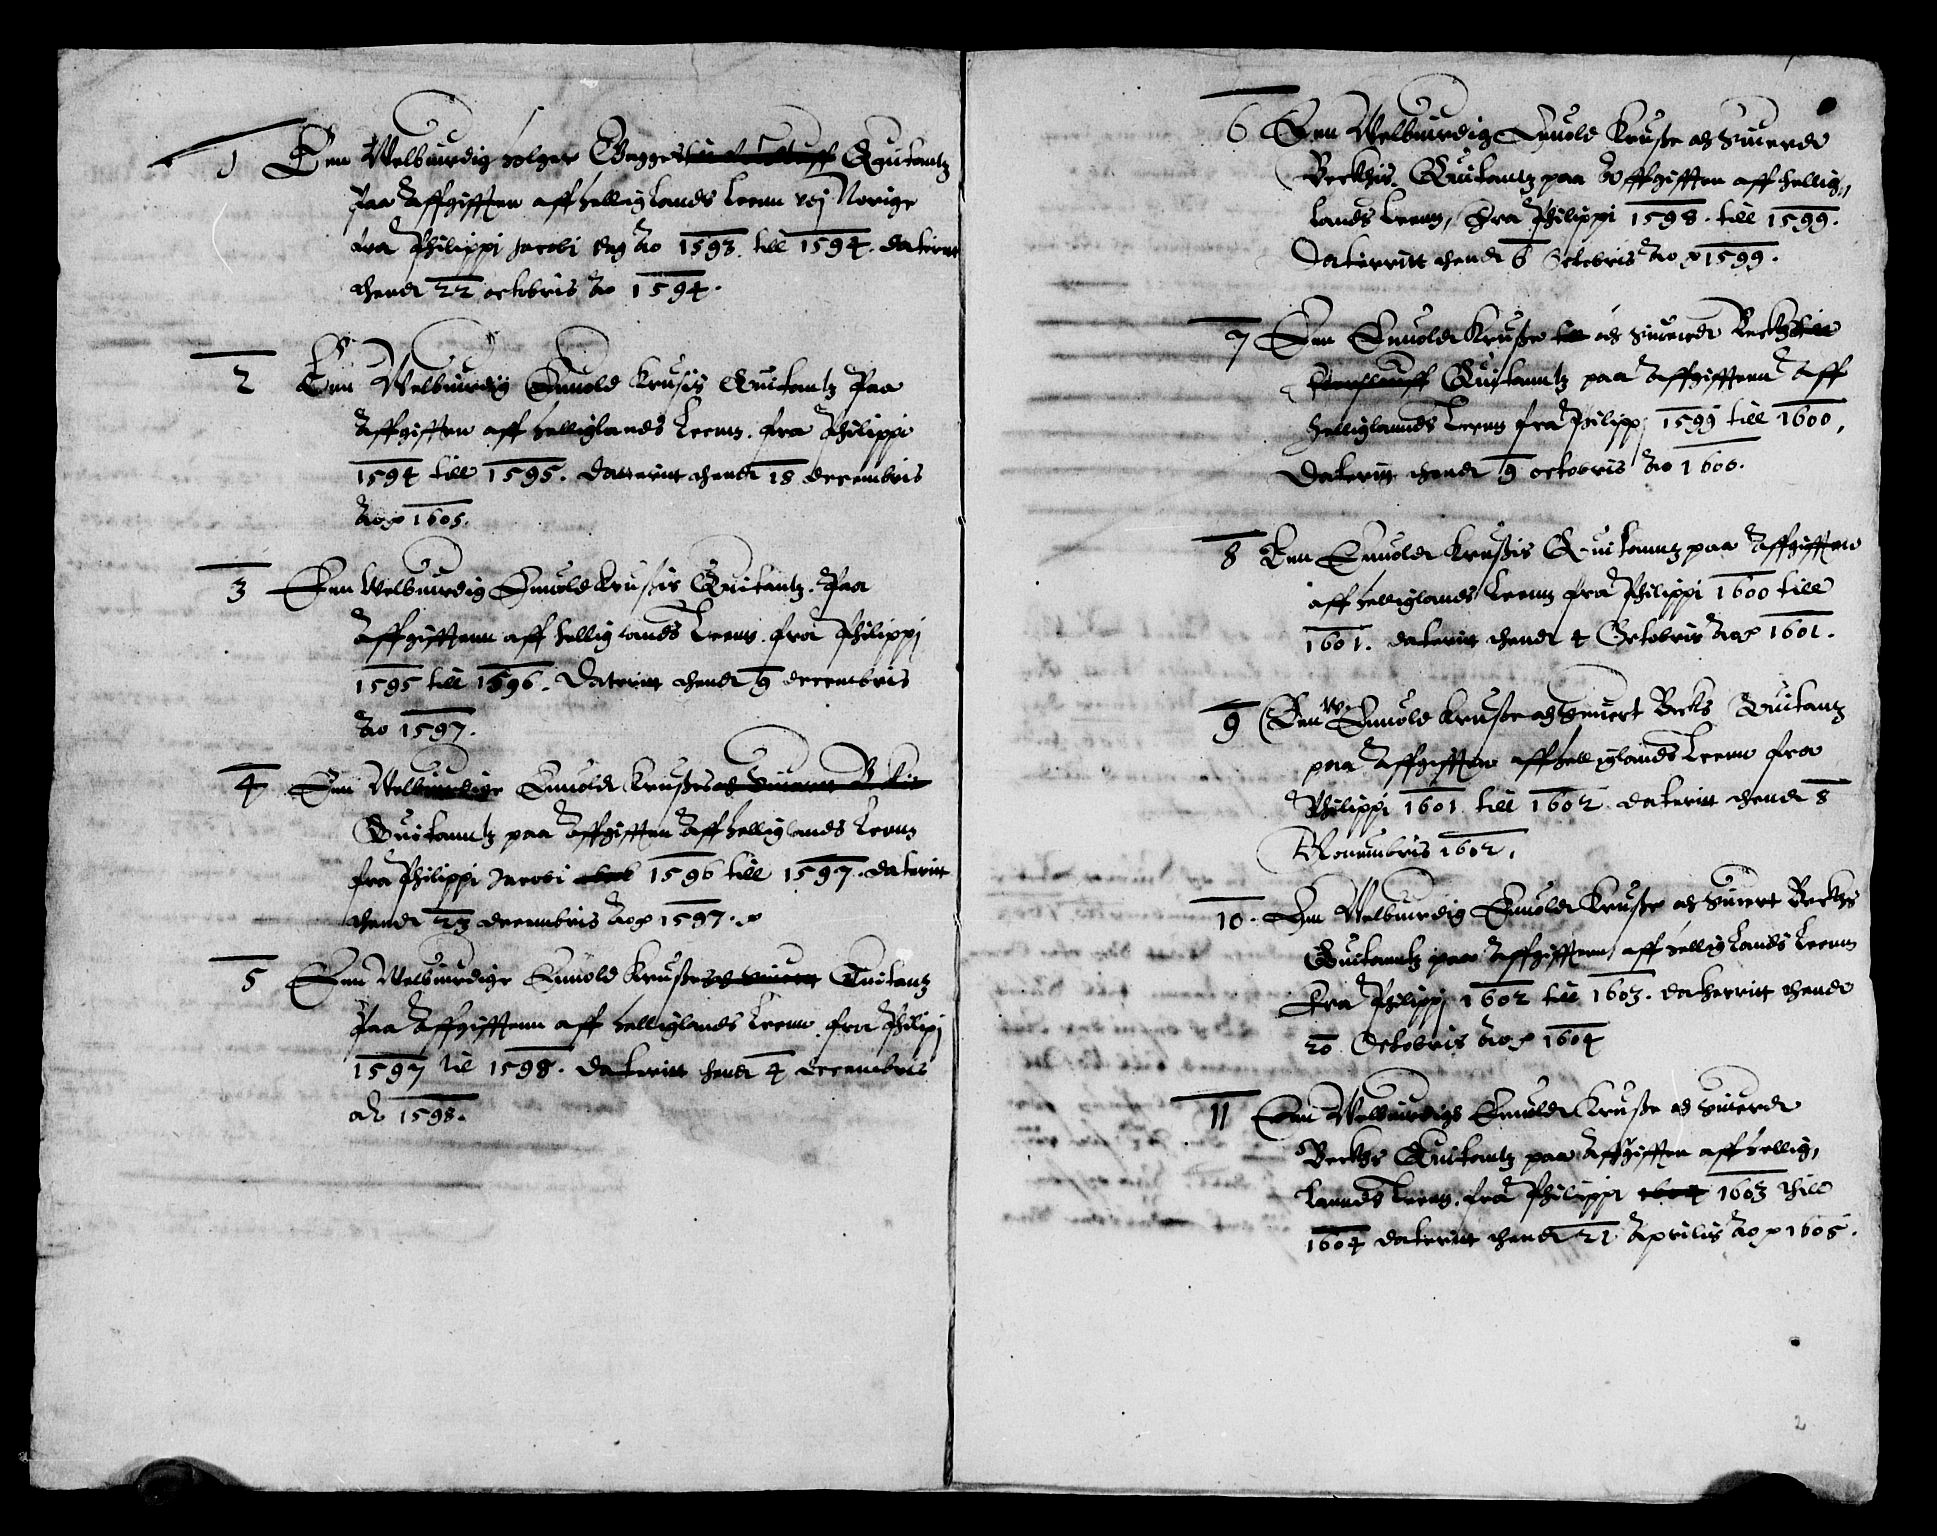 1 Een Welbiurdig holger Gagges Quitantz
Paa Affgifften aff helliglands Leenn vdj Norige
fra Philippi Jacobi dag Ao 1593. till 1594. daterit
thend 22 octobris Ao 1594.
2 Een Welbiurdig Enuold Krusis Quitantz Paa
Affgifften aff helliglands Leenn. fra Philippi
1594 till 1595. Datterit thend 18 decembris
Ao 1605.
3 Een Welbiurdig Enuold Krusis Quitantz. Paa
Affgifftenn aff helliglands Leenn. fra Philippi
1595 till 1596. Daterit thend 9 decembris
Ao 1597.
4 Een Welbiurdige Enuold Kruses aff Siuertt Beckis
Quitanntz paa Affgifften Aff helliglands Leenn
fra Philippi Jacobi 1596 till 1597. daterit
thend 23 decembris Ao 1597.
5 Een Welbiurdige Enuold Kruses aff Siuertt Quitantz
Paa Affgifftenn aff helliglands Leenn. fra Philipi
1597 til 1598. daterit thend 4 decembris
Ao 1598.
6 Een Welbiurdig Enuold Kruse aff Siuerde
Beckis Quitantz paa Affgifften aff hellig,,
lands Leenn, Fra Philippi 1598. till 1599.
Daterritt thend 6 Octobris Ao 1599.
7 Een Enuold Kruse aff Siuerdt Becks
Quitanntz paa Affgifftenn Aff
helliglannds Leenn fra Philippj 1599 till 1600,
Dateritt thend 9 octobris Ao 1600.
8 Een Enuold Krusis Quitanntz paa Affgifften
aff helliglands Leenn fra Philippi 1600 till
1601. daterit thend 4 Octobris Ao 1601.
9 Een W. Enuold Kruse aff Siuert Becks Quitantz
paa Affgifften aff helliglands Leenn fra
Philippi 1601 till 1602. daterit thend 8
Nouembris 1602.
10. Een Welbiurdig Enuold Kruse aff Siuert Beckes
Quitanntz paa Affgifftenn aff helliglands Leenn
Fra Philippj 1602 till 1603. datherrit thend
20 Octobris Ao 1604
11 Een Welbiurdigs Enuold Kruse aff Siuerde
Beckes Quitantz paa Affgifften aff hellig,
lannds Leenn. fra Philippi 1604 1603 thill
1604 daterit thend 21 Aprilis Ao 1605.
2